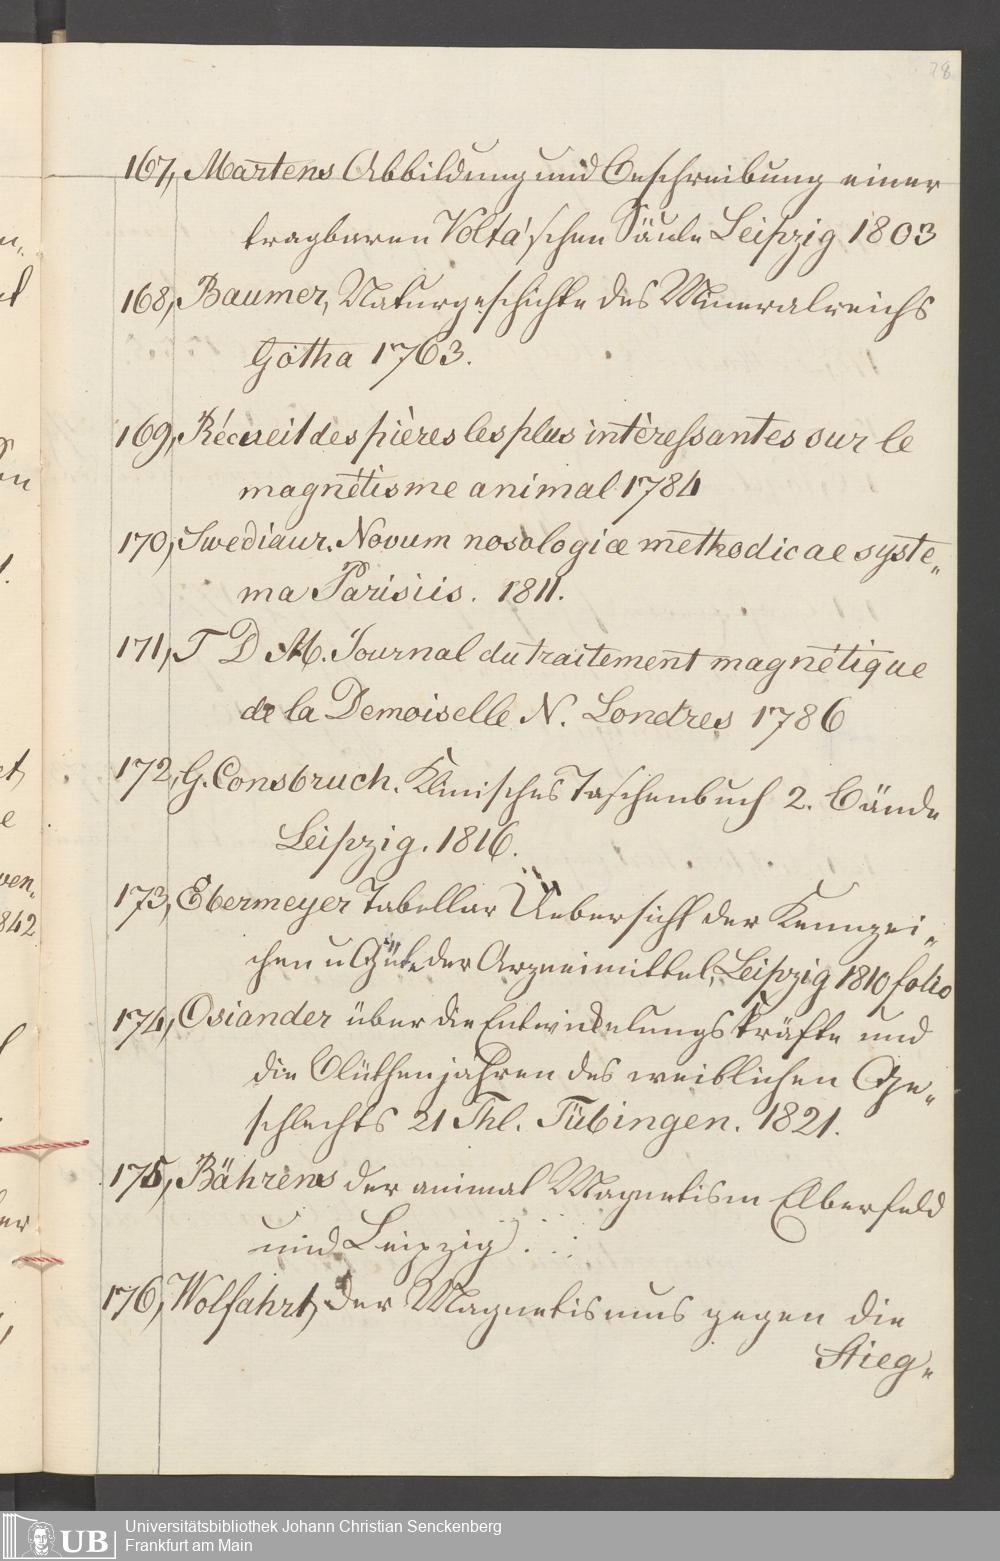 78
167, Martens Abbildung und Beschreibung einer
tragbaren Volta'schen Säule Leipzig 1803
168, Baumer, Naturgeschichte des Mineralreichs
Gotha 1763.
169, Récueil des pières les plus intèressantes sur le
magnétisme animal 1784
170, Swediaur. Novum nosologiæ methodicae syste„
ma Parisiis. 1811.
171, T D M. Journal du traitement magnétique
de la Demoiselle N. Londres 1786
172, G. Consbruch. Klinisches Taschenbuch 2. Bände
Leipzig. 1816.
173, Ebermeyer Tabellar Uebersicht der Kennzei„
chen u Güte der Arzneimittel, Leipzig 1810 folio
174, Osiander über die Entwickelungskräfte und
die Blüthenjahren des weiblichen Ge„
schlechts 21 Thl. Tübingen. 1821.
175, Bährens der animal Magnetism Elberfeld
und Leipzig.
176, Wolfahrt, der Magnetismus gegen die
Stieg„
n„
en
et
e
ven„
842
er
UB
Universitätsbibliothek Johann Christian Senckenberg
Frankfurt am Main